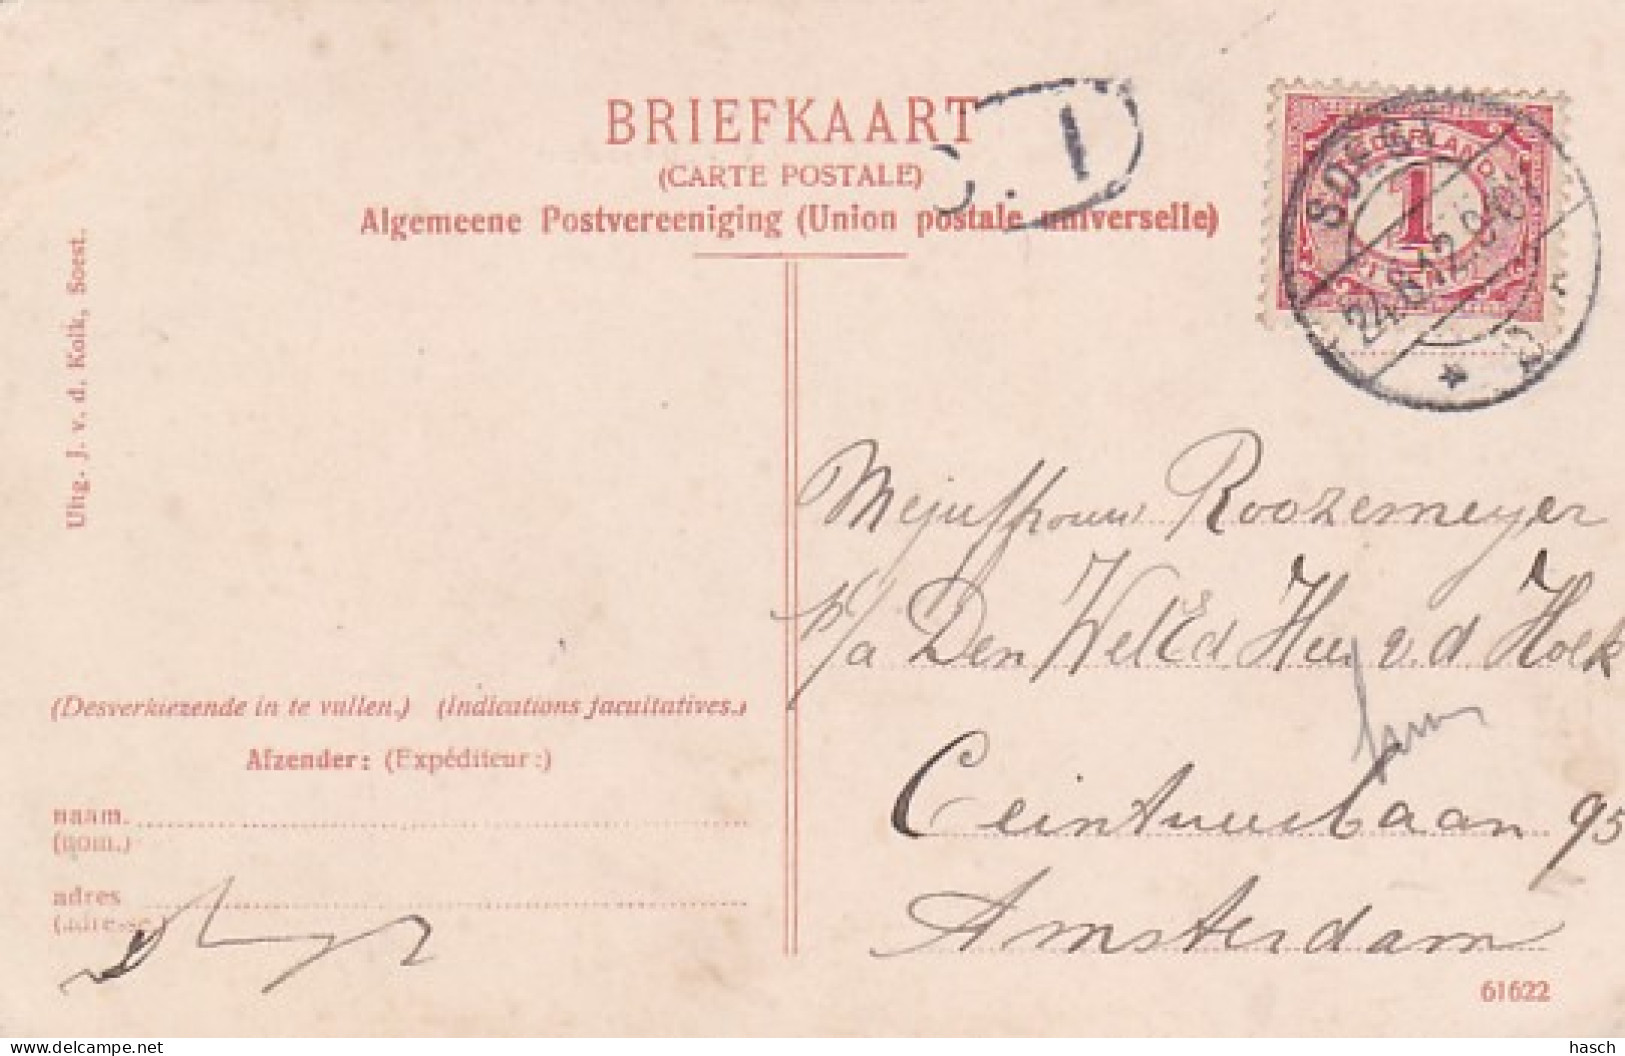 BRIEFKAART
(CARTE POSTALE)
Algemeene Postvereeniging (Union postale universelle)
Uitg. J. v. d. Kolk, Soest.
NEDERLAND
1
CENT
SOEST
24.8.12.
. 1
Mejuffrouw Roozemeyer
p/a Den WelEd Heer v.d. Hoek
Ceintuurbaan 95
Amsterdam
(Desverkiezende in te vullen.) (Indications facultatives.)
Afzender: (Expéditeur:)
naam.
(nom.)
adres
(adresse.)
61622
delcampe.net
hasch